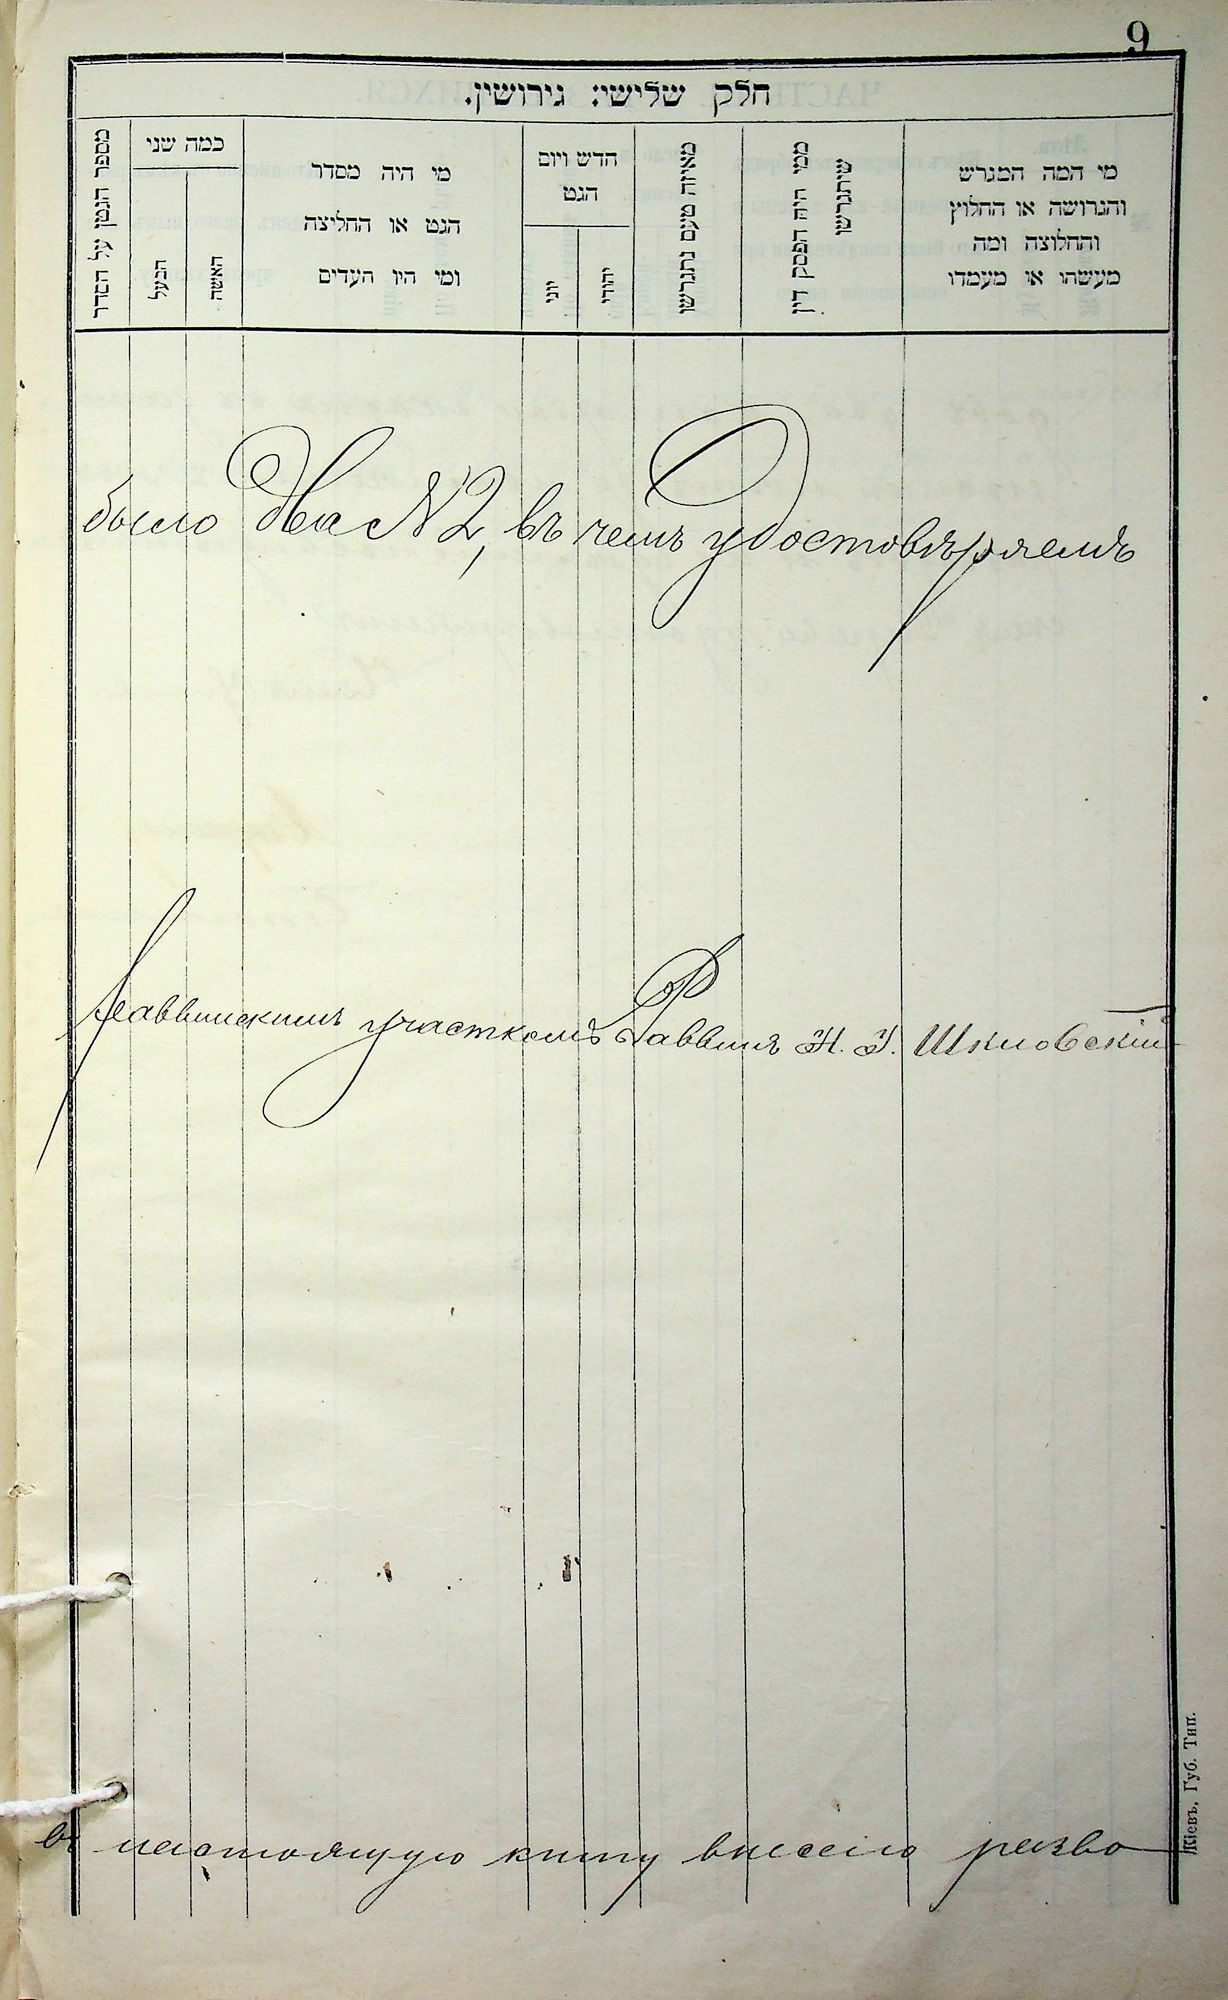 9
חלק שלישי: גירושין.
מי המה המגרש
והגרושה או החלוץ
והחלוצה ומה
מעשהו או מעמדו
ממי היה הפסק דין
שיתגרשו
מאיזה טעם נתגרשו
חדש ויום
הגט
יהודי
יוני
מי היה מסדר
הגט או החליצה
ומי היו העדים
כמה שני
האשה
הבעל
מספר הגטן על הסדר
было два № 2, въ чемъ удостовѣряемъ
Раввинскимъ участкомъ Раввинъ Н. У. Шкловскій
въ настоящую книгу внесено разво
Кіевъ, Губ. Тип.